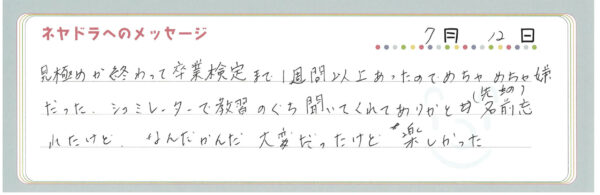 ネヤドラへのメッセージ
7月 12日
見極めが終わって卒業検定まで1週間以上あったのでめちゃめちゃ嫌
だった、シュミレーターで教習のぐち聞いてくれてありがとう(先)名前忘
れたけど、なんだかんだ大変だったけど楽しかった